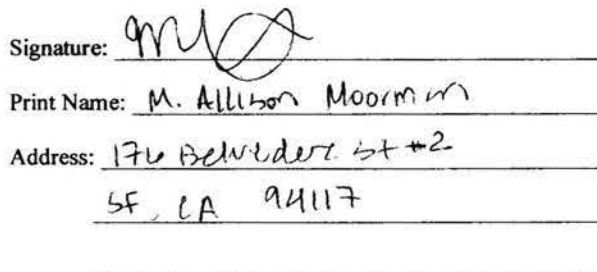 Signature:
Print Name: M. Allison Moorman
Address: 176 Belvedere St #2
SF, CA 94117